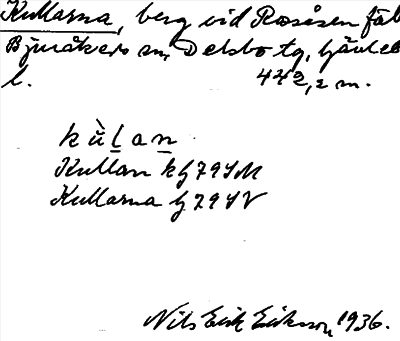 Kullarna, berg vid Rosåsen fäb
Bjuråkers sn, Delsbo tg, Gävleb
l. 442,2 m.
kùlan
Kullan kg 79 SM
Kullarna g 79 SV
Nils Erik Eriksson, 1936.